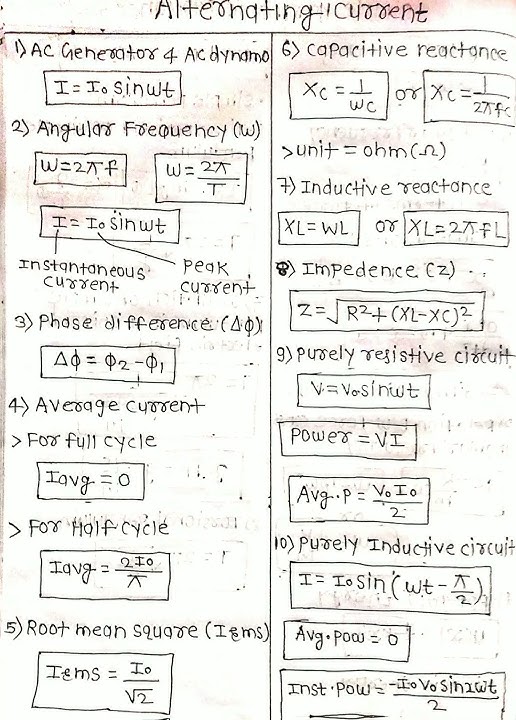 Alternating Current
1) AC Generator & Ac dynamo
I = I₀ sinωt
2) Angular Frequency (ω)
W = 2πf
W = 2π/T
I = I₀ sinωt
Instantaneous current
Peak current
3) Phase difference (Δϕ)
Δϕ = ϕ₂ - ϕ₁
4) Average current
> For full cycle
Iavg = 0
> For Half cycle
Iavg = 2I₀/π
5) Root mean square (Irms)
Irms = I₀/√2
6) capacitive reactance
Xc = 1/ωC or Xc = 1/2πfc
> unit = ohm (Ω)
7) Inductive reactance
XL = WL or XL = 2πfL
8) Impedence (Z)
Z = √R² + (XL-XC)²
9) Purely resistive circuit
V = V₀ sinωt
Power = VI
Avg.P = V₀I₀/2
10) Purely Inductive circuit
I = I₀ sin (ωt - π/2)
Avg.pow = 0
Inst.Pow = -I₀V₀ sin2ωt/2